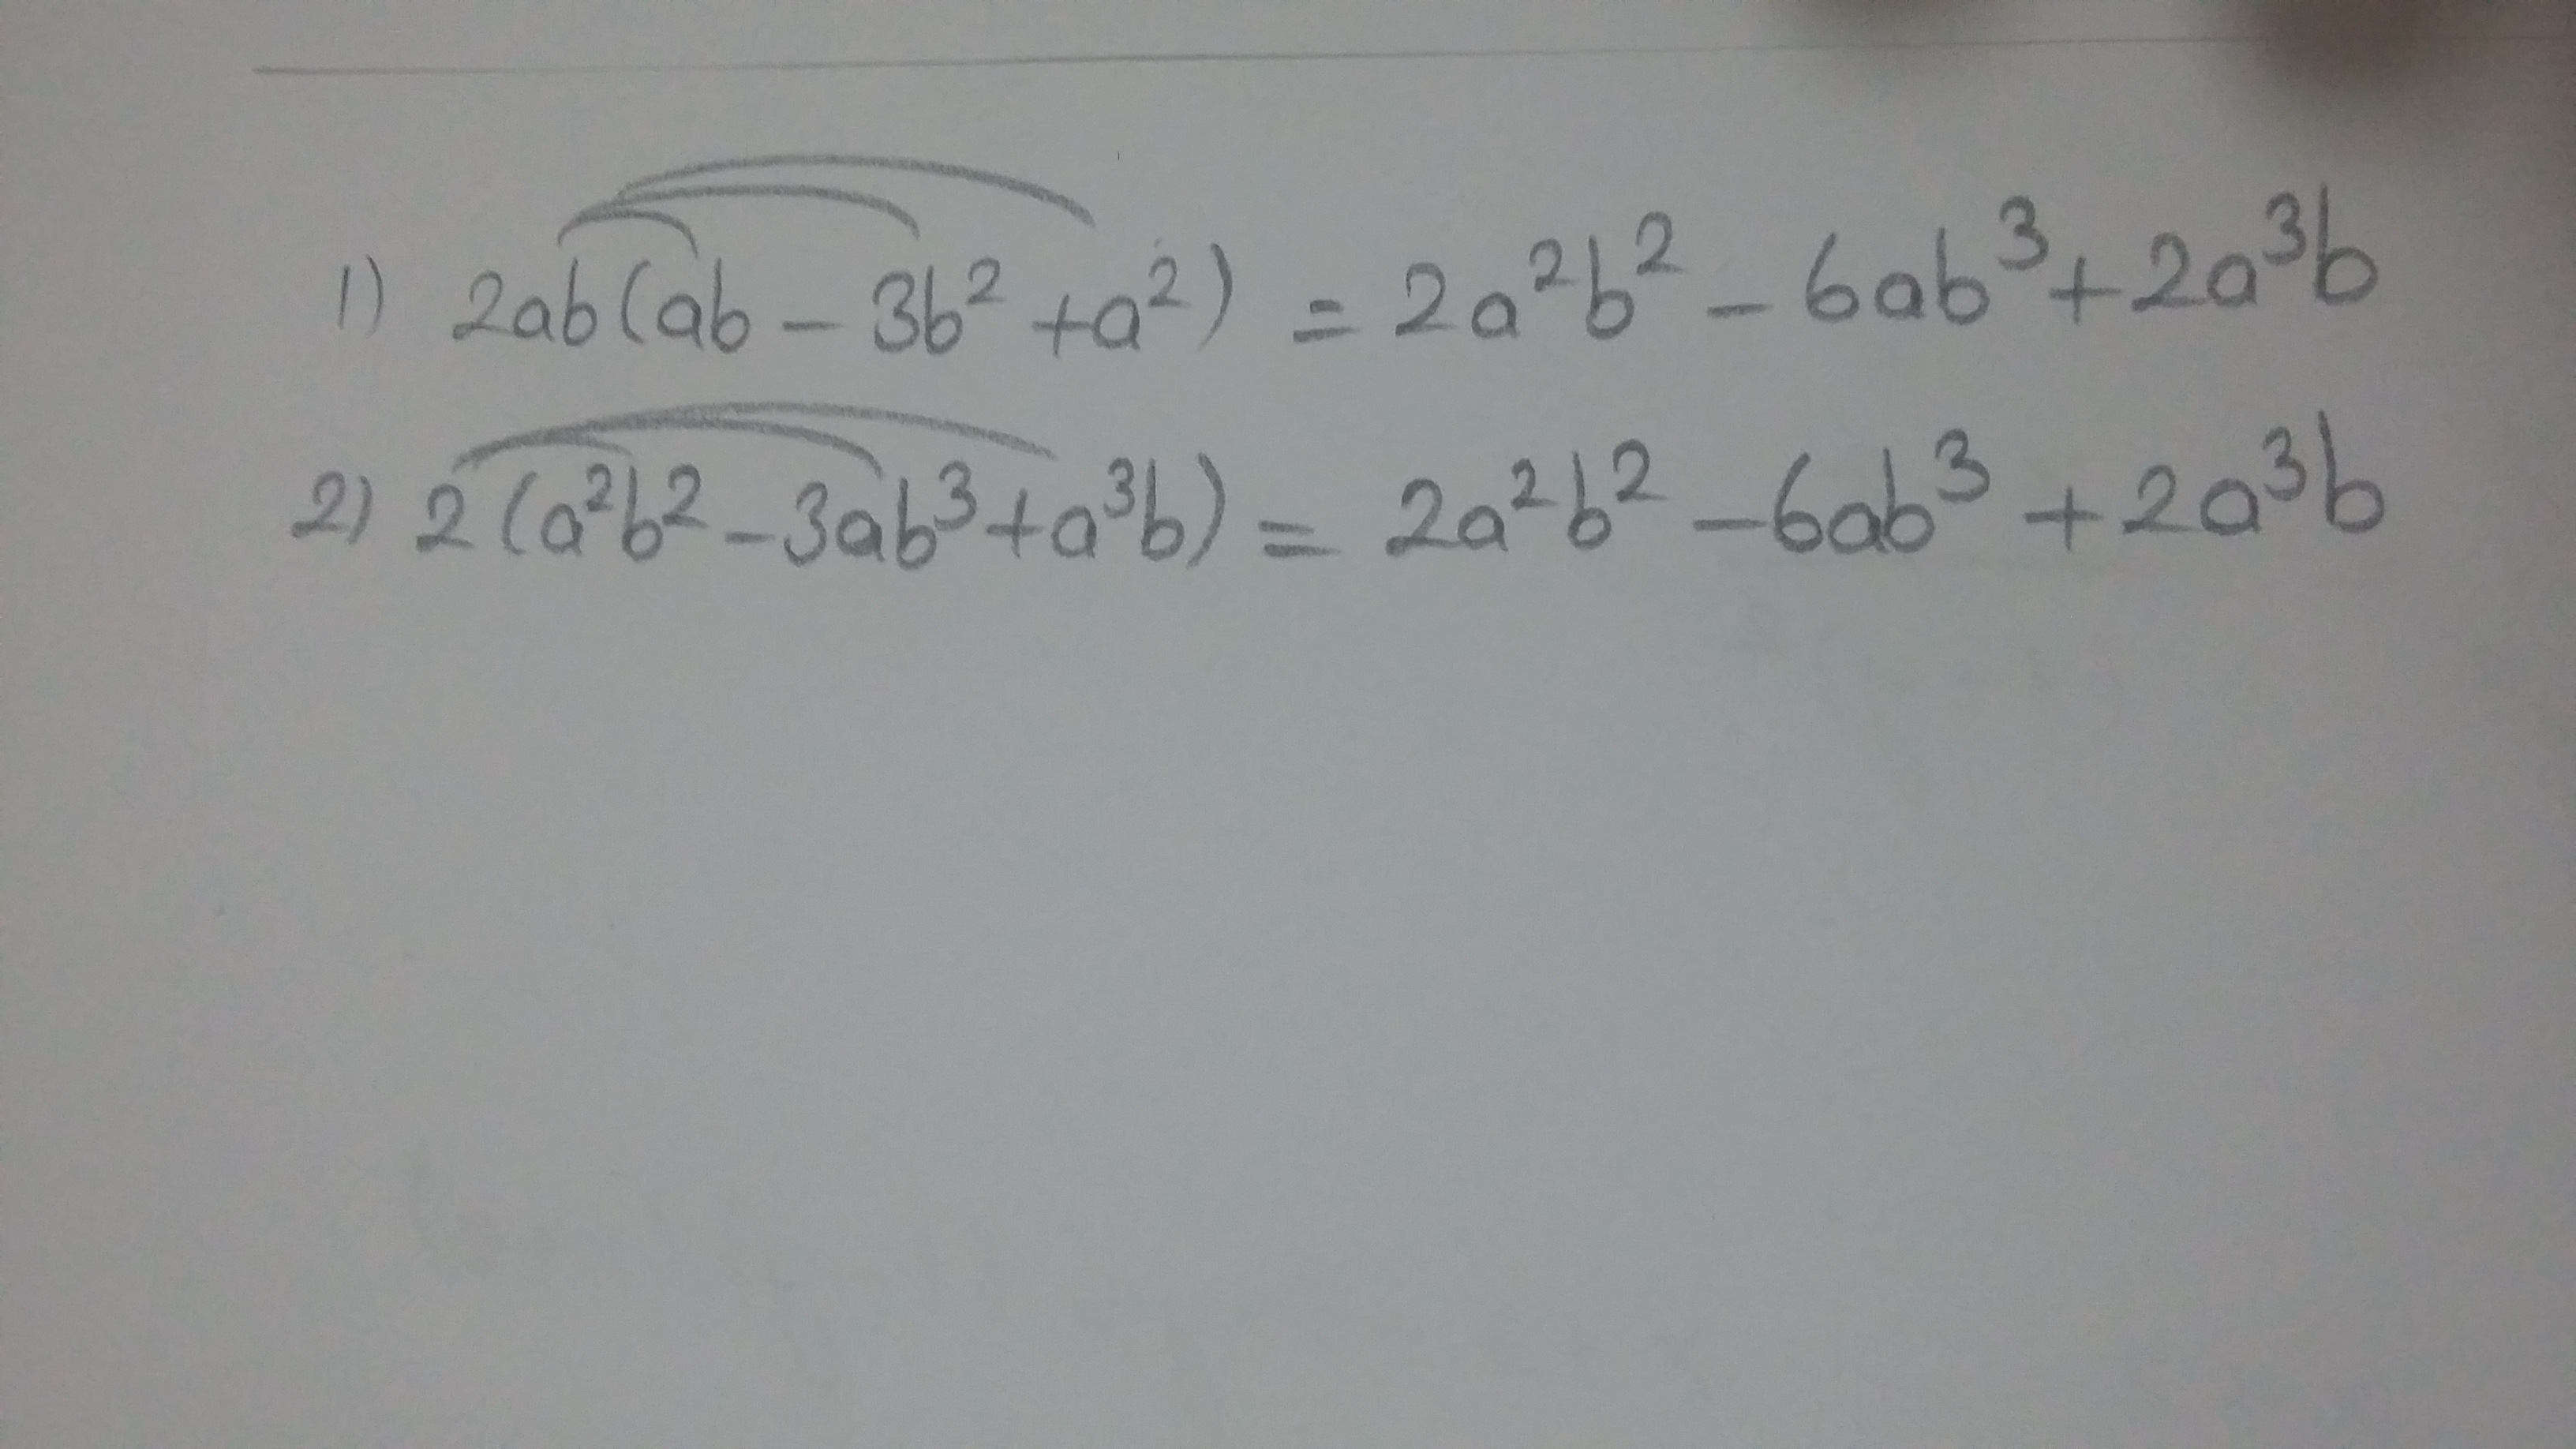 1) 2ab(ab - 3b² + a²) = 2a²b² - 6ab³ + 2a³b
2) 2(a²b² - 3ab³ + a³b) = 2a²b² - 6ab³ + 2a³b